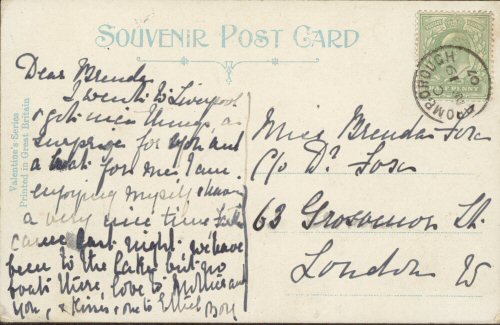 SOUVENIR POST CARD
Valentine's Series
Printed in Great Britain
Dear Brenda
I went to Liverpool
& got nice things, a
surprise for you and
a boat for me. I am
enjoying myself & having
a very nice time
came last night. we have
been to the Lake but no
boats there, love to Mother and
you, & kind one to Ethel Boy
BROMBOROUGH
07
PENNY
Miss Brenda
c/o Dr
63 Grosvenor St.
London W